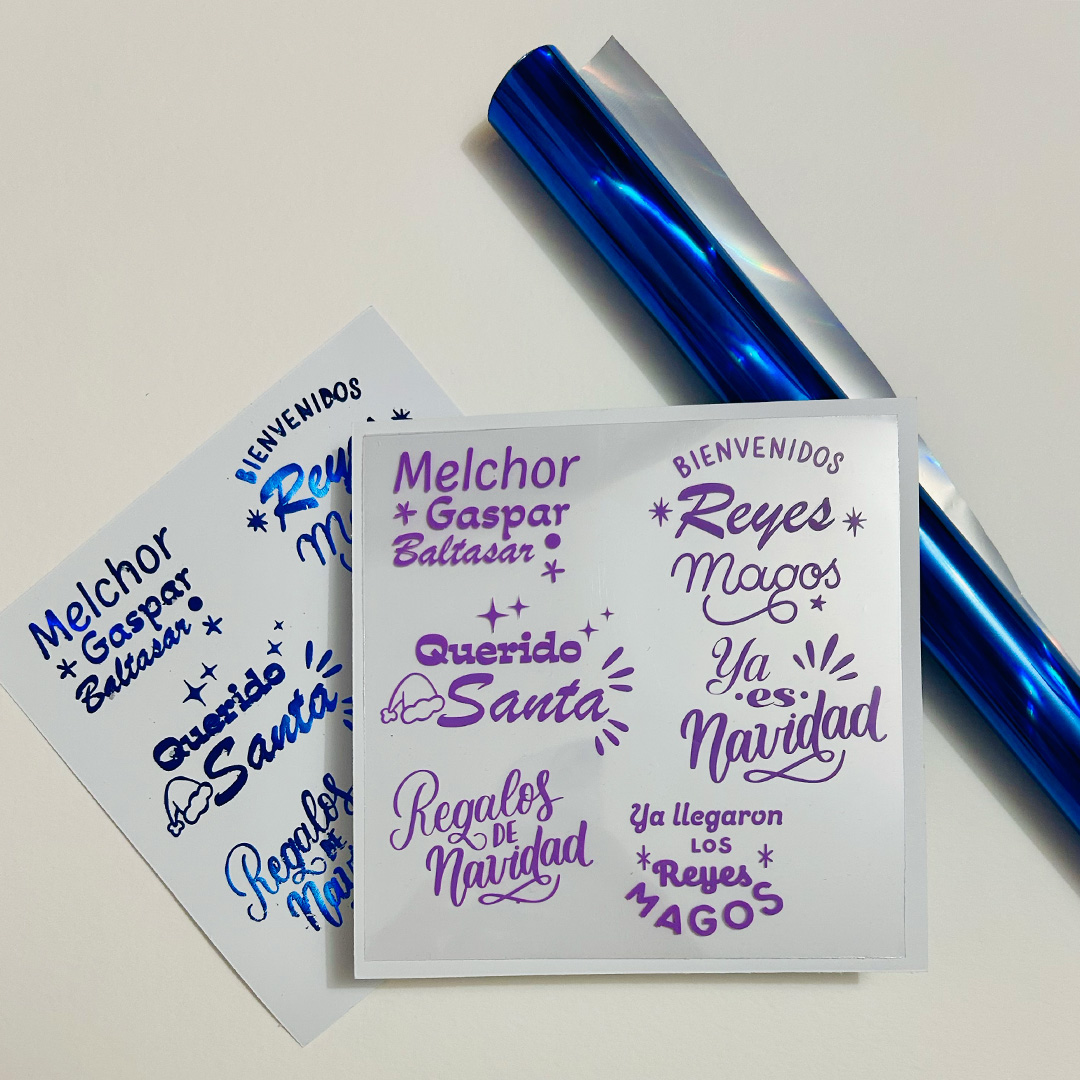 Melchor
Gaspar
Baltasar
BIENVENIDOS
Reyes
Magos
Querido
Santa
Ya
es
Navidad
Regalos
DE
Navidad
Ya llegaron
LOS
Reyes
MAGOS
BIENVENIDOS
Melchor
Gaspar
Baltasar
Querido
Santa
Regalos
DE